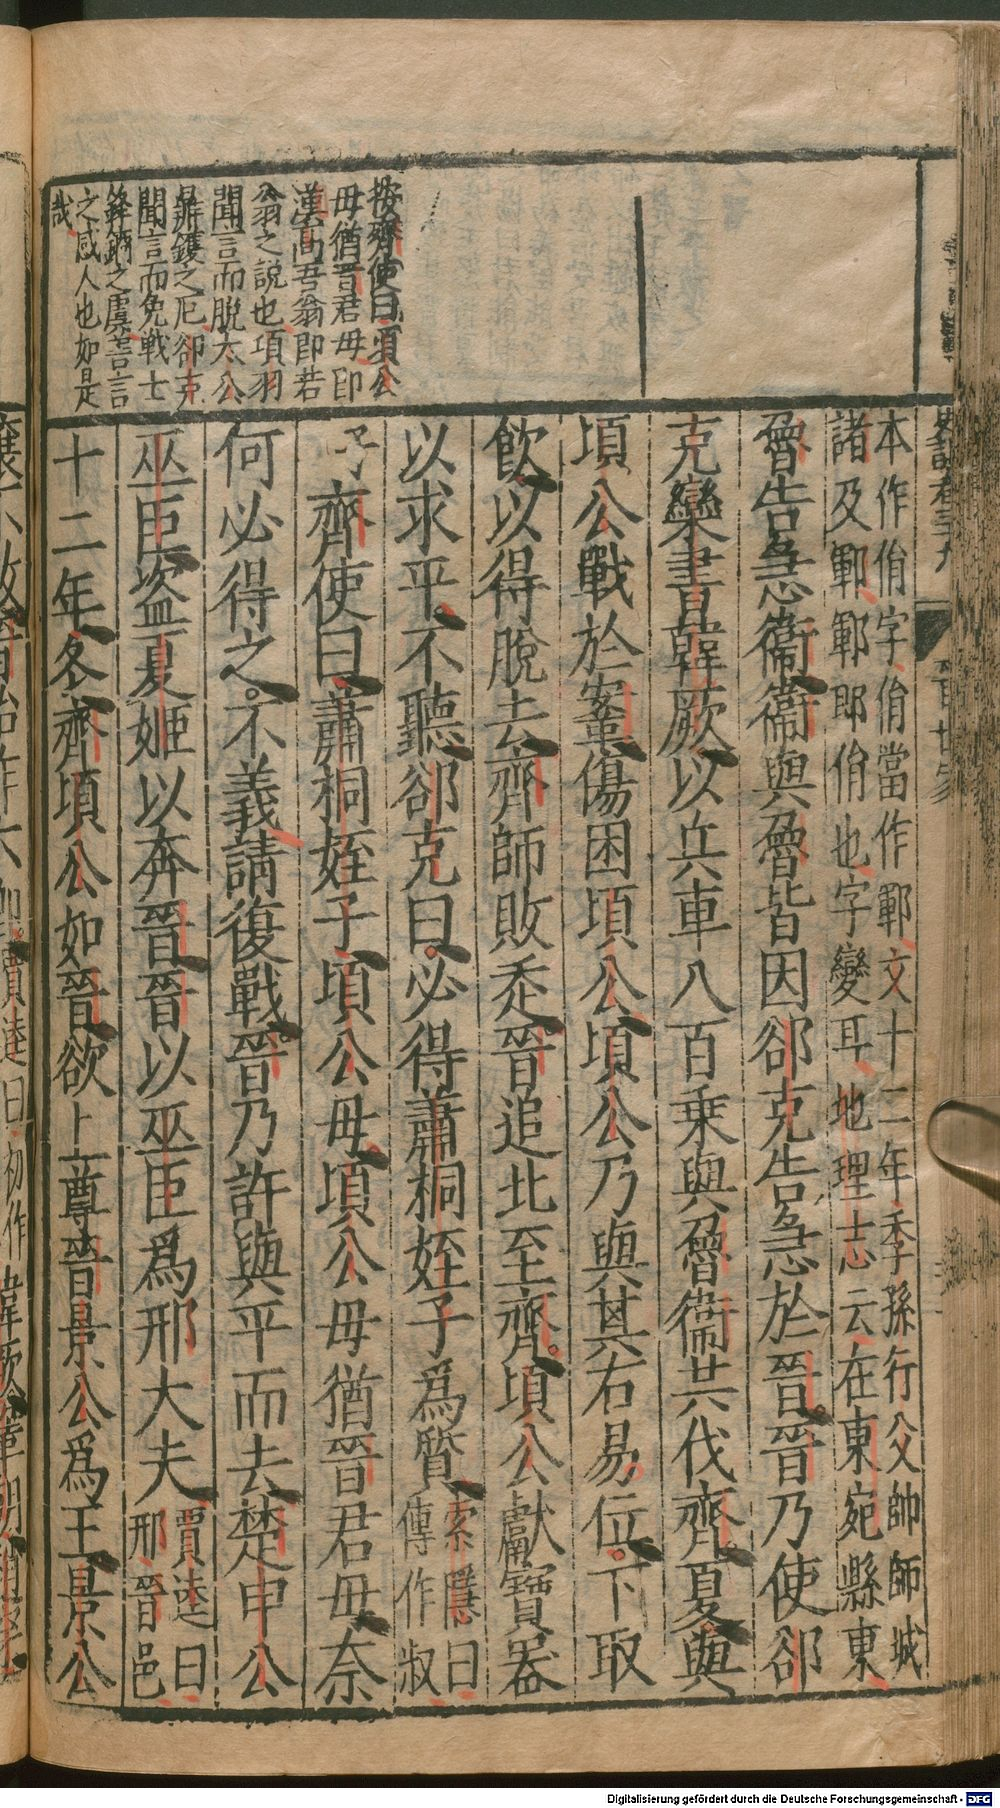 按齊使曰頃公
母猶晉君母即
漢高吾翁即若
翁之說也項羽
聞言而脫太公
鼎鑊之厄郤克
聞言而免戰士
鋒鏑之虞善言
之感人也如是
哉
史記卷三十九
本作佾字佾當作鄆文十二年季孫行父帥師城
諸及鄆鄆即佾也字變耳地理志云在東宛縣東
魯告急衞衞與魯皆因郤克告急於晉晉乃使郤
克欒書韓厥以兵車八百乗與魯衞共伐齊夏與
頃公戰於鞌傷困頃公頃公乃與其右易位下取
飲以得脫去齊師敗走晉追北至齊頃公獻寶器
以求平不聽郤克曰必得蕭桐姪子爲質索隱曰
傳作叔
子齊使曰蕭桐姪子頃公母頃公母猶晉君母奈
何必得之不義請復戰晉乃許與平而去楚申公
巫臣盜夏姬以奔晉晉以巫臣爲邢大夫賈逵曰
邢晉邑
十二年冬齊頃公如晉欲上尊晉景公爲王景公
Digitalisierung gefördert durch die Deutsche Forschungsgemeinschaft - DFG